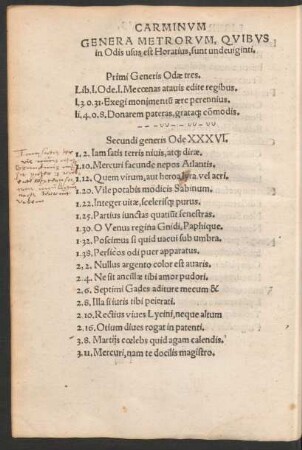 CARMINVM
GENERA METRORVM, QVIBVS
in Odis usus est Horatius, sunt undeuiginti.
Primi Generis Odæ tres.
Lib. I. Ode. I. Mecœnas atauis edite regibus.
L. 3. o. 31. Exegi monimentū ære perennius.
li. 4. o. 8, Donarem pateras, grataq; cōmodis.
Secundi generis Odę XXXVI.
1, 2. Iam satis terris niuis, atq; diræ.
1.10. Mercuri facunde nepos Atlantis.
1.12. Quem virum, aut heroa lyra vel acri.
1.20. Vile potabis modicis Sabinum.
1.22. Integer uitæ, scelerisq; purus.
1.25. Partius iunctas quatiūt fenestras.
1.30. O Venus regina Gnidi, Paphique.
1.32. Poscimus si quid uacui sub umbra.
1.38. Persicos odi puer apparatus.
2, 2. Nullus argento color est auaris.
2.4. Ne sit ancillæ tibi amor pudori.
2.6. Septimi Gades aditure mecum &
2.8. Illa si iuris tibi peierati.
2.10. Rectius viues Lycini, neque altum
2.16. Otium diuos rogat in patenti.
3.8. Martijs cœlebs quid agam calendis.
3.11. Mercuri, nam te docilis magistro.